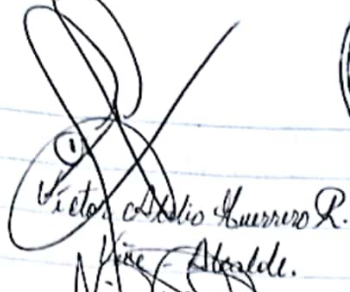 1
Victor Atilio Guerrero R.
Vice-Alcalde.